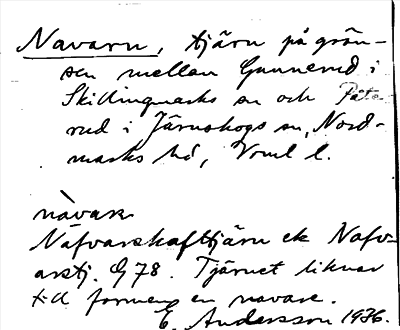 Navarn, tjärn på grän-
sen mellan Gunnerud i
Skillingmarks sn och
rud i Järnskogs sn, Nord-
marks hd, Vrml l.
nàvarn
Nafvarskafttjärn ek Nafv-
arstj. G78. Tjärnet liknar
till formen en navare.
E. Andersson 1936.